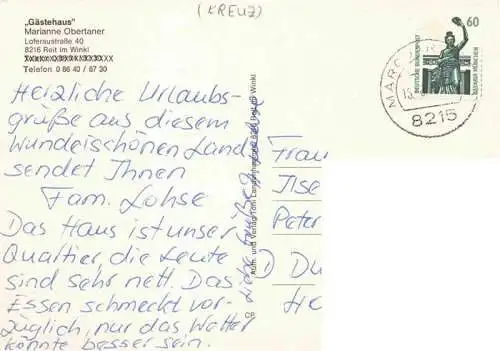 (KREUZ)
„Gästehaus"
Marianne Obertaner
Loferaustraße 40
8216 Reit im Winkl
Telefon 0 86 40 / 87 30
Herzliche Urlaubs-
grüße aus diesem
wunderschönen Land
sendet Ihnen
Fam. Lohse
Das Haus ist unser
Quartier, die Leute
sind sehr nett. Das
Essen schmeckt vor-
züglich, nur das Wetter
könnte besser sein.
Aufn. und Verlag: Toni
8216 Reit im Winkl
CB
60
DEUTSCHE BUNDESPOST
BAVARIA MÜNCHEN
MARQ
8215
Frau
Ilse
Peter